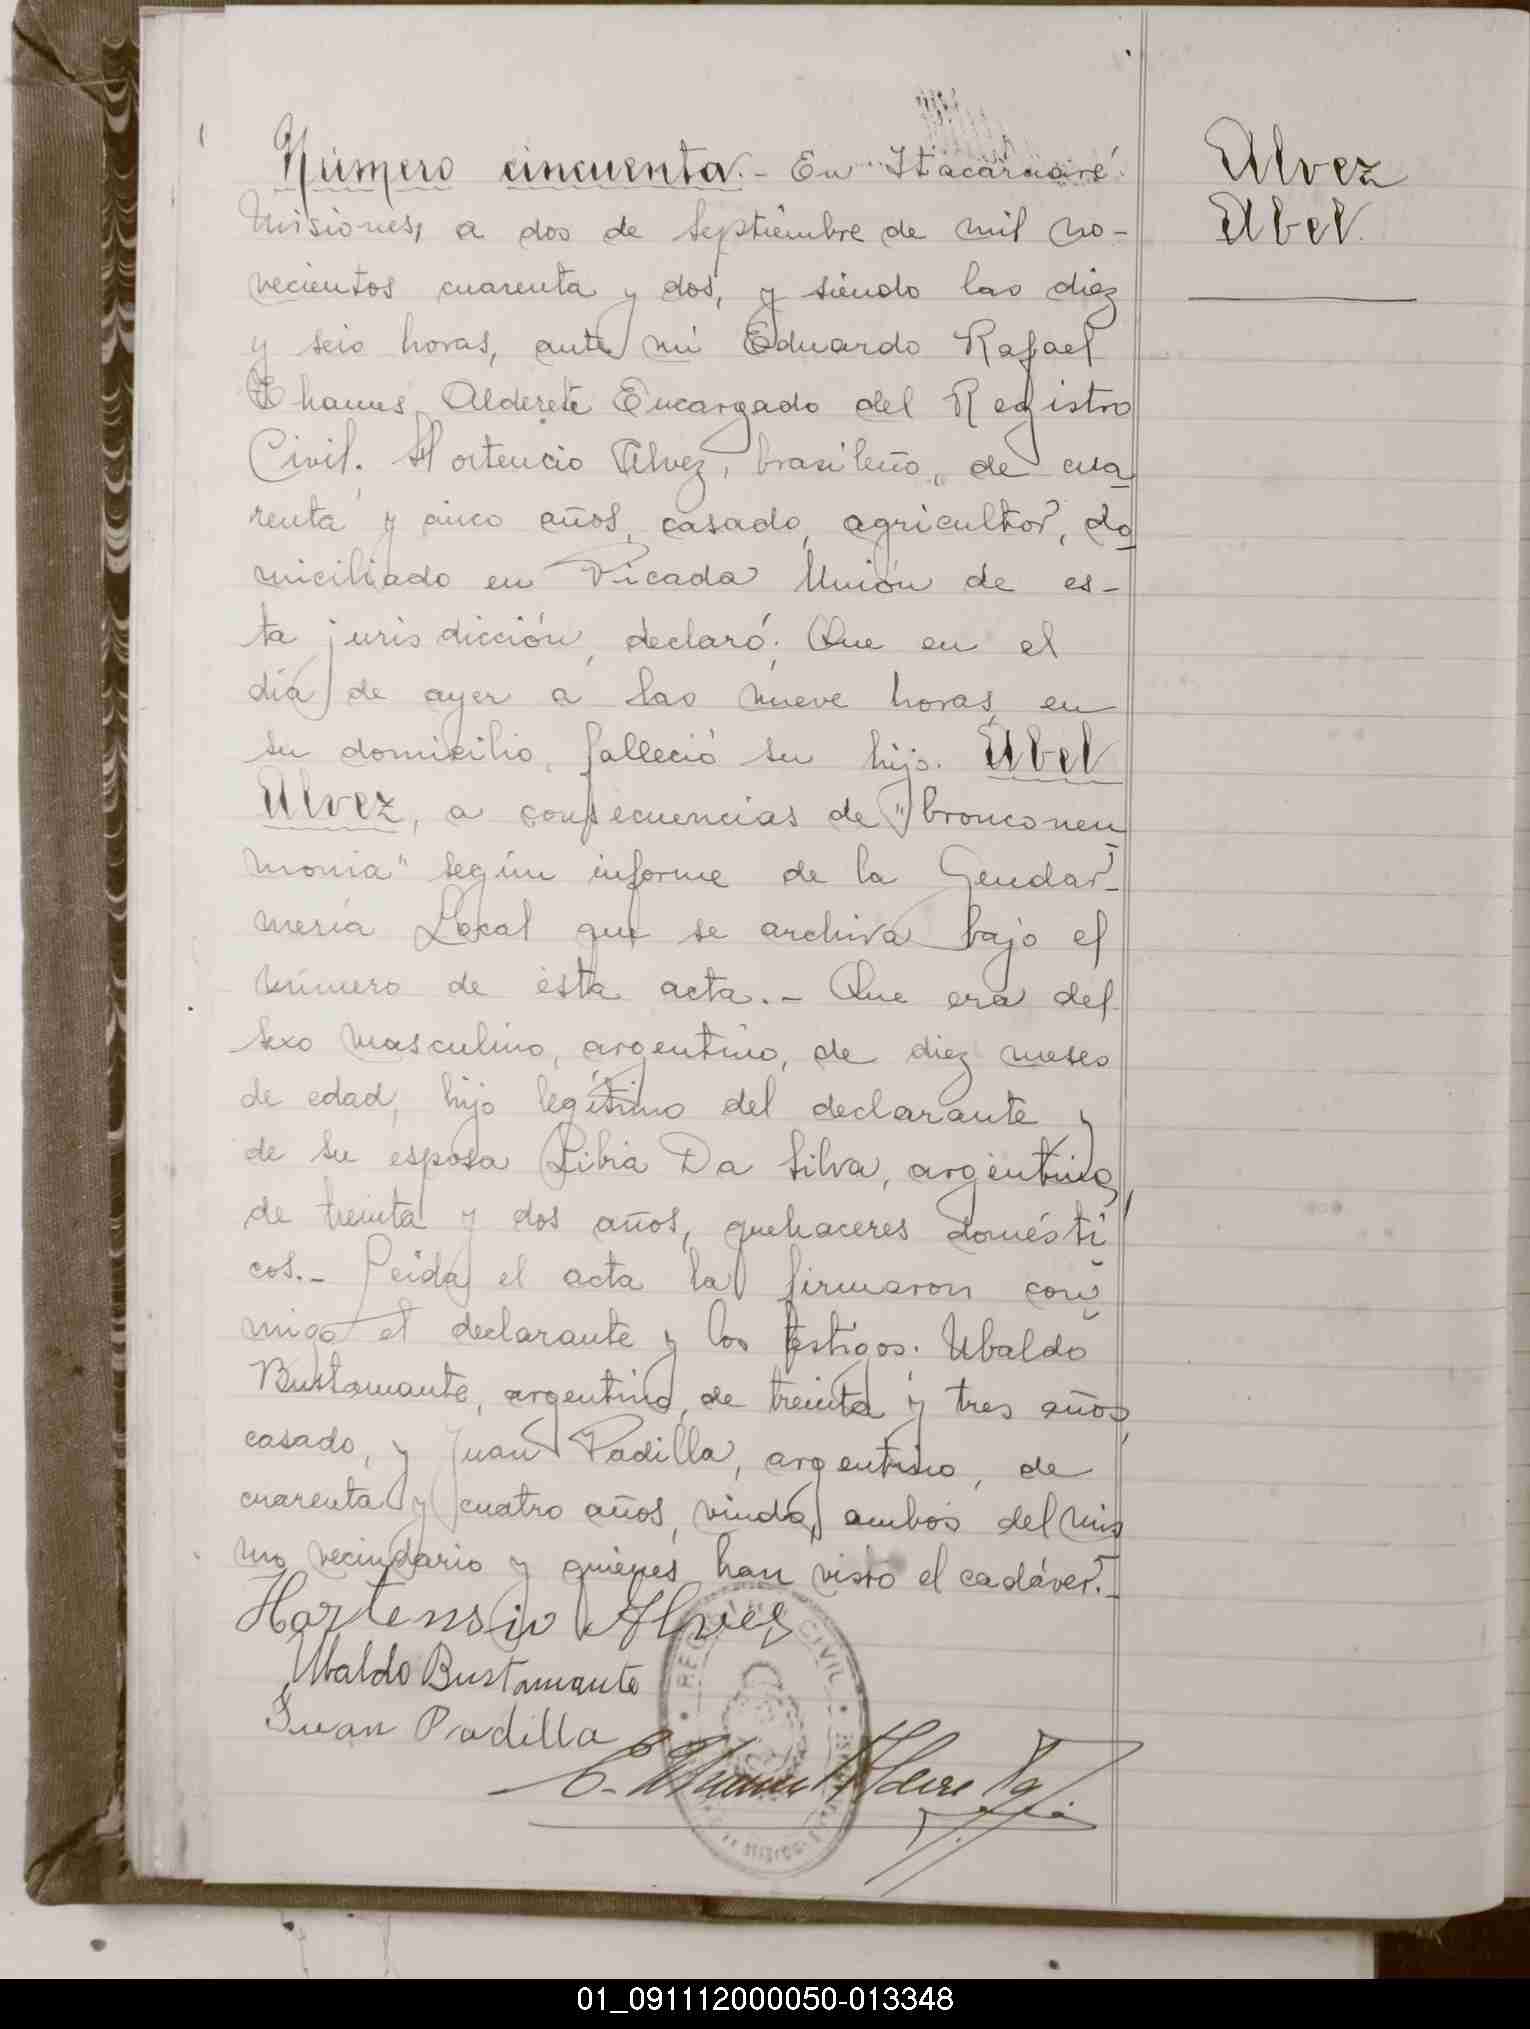 Número cincuenta.- En Itacaruaré
Misiones, a dos de septiembre de mil no-
vecientos cuarenta y dos, y siendo las diez
y seis horas, ante mí Eduardo Rafael
Alderete Encargado del Registro
Civil. Hortencio Alvez, brasileño, de cua
renta y cinco años, casado, agricultor, do
miciliado en Picada Unión de es-
ta jurisdicción, declaró: Que en el
día de ayer a las nueve horas, en
su domicilio, falleció su hijo. Abel
Alvez, a consecuencias de "bronconeu
monia" según informe de la Gendar-
mería Local que se archiva bajo el
número de ésta acta.- Que era del
sexo masculino, argentino, de diez meses
de edad, hijo legítimo del declarante y
de su esposa Libia Da Silva, argentina,
de treinta y dos años, quehaceres domésti
cos.- Leida el acta la firmaron con
migo el declarante y los testigos. Ubaldo
Bustamante, argentino, de treinta y tres años,
casado, y Juan Padilla, argentino, de
cuarenta y cuatro años, viudo, ambos del mis
mo vecindario y quienes han visto el cadáver.-
Hortensio Alves
Ubaldo Bustamante
Juan Padilla
REGISTRO CIVIL
Alvez
Abel
01_091112000050-013348